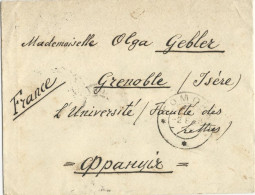 Mademoiselle Olga Gebler
Grenoble (Isère)
France
L'Université (Faculté des
Lettres)
= Франція =